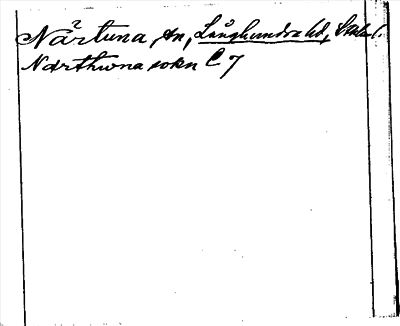 Närtuna, sn, Långhundra hd, Sthlm l.
Narthwna sokn C 7